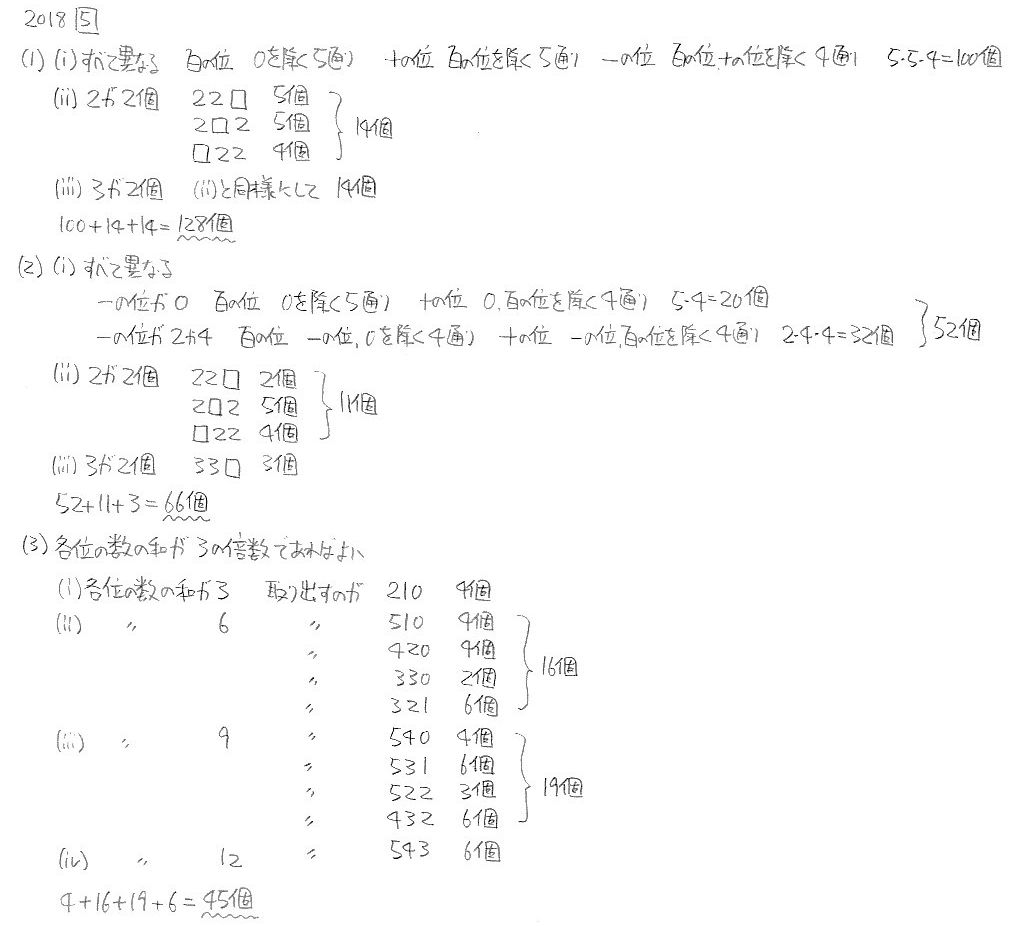 2018 5
(1) (i) すべて異なる 百の位 0を除く5通り 十の位 百の位を除く5通り 一の位 百の位,十の位を除く4通り 5・5・4=100個
(ii) 2が2個 22□ 5個
2□2 5個
□22 4個
14個
(iii) 3が2個 (ii)と同様にして 14個
100+14+14=128個
(2) (i) すべて異なる
一の位が0 百の位 0を除く5通り 十の位 0,百の位を除く4通り 5・4=20個
一の位が2か4 百の位 一の位,0を除く4通り 十の位 一の位,百の位を除く4通り 2・4・4=32個
52個
(ii) 2が2個 22□ 2個
2□2 5個
□22 4個
11個
(iii) 3が2個 33□ 3個
52+11+3=66個
(3) 各位の数の和が3の倍数であればよい
(i) 各位の数の和が3 取り出すのが 210 4個
(ii) 〃 6 〃 510 4個
〃 420 4個
〃 330 2個
〃 321 6個
16個
(iii) 〃 9 〃 540 4個
〃 531 6個
〃 522 3個
〃 432 6個
19個
(iv) 〃 12 〃 543 6個
4+16+19+6=45個